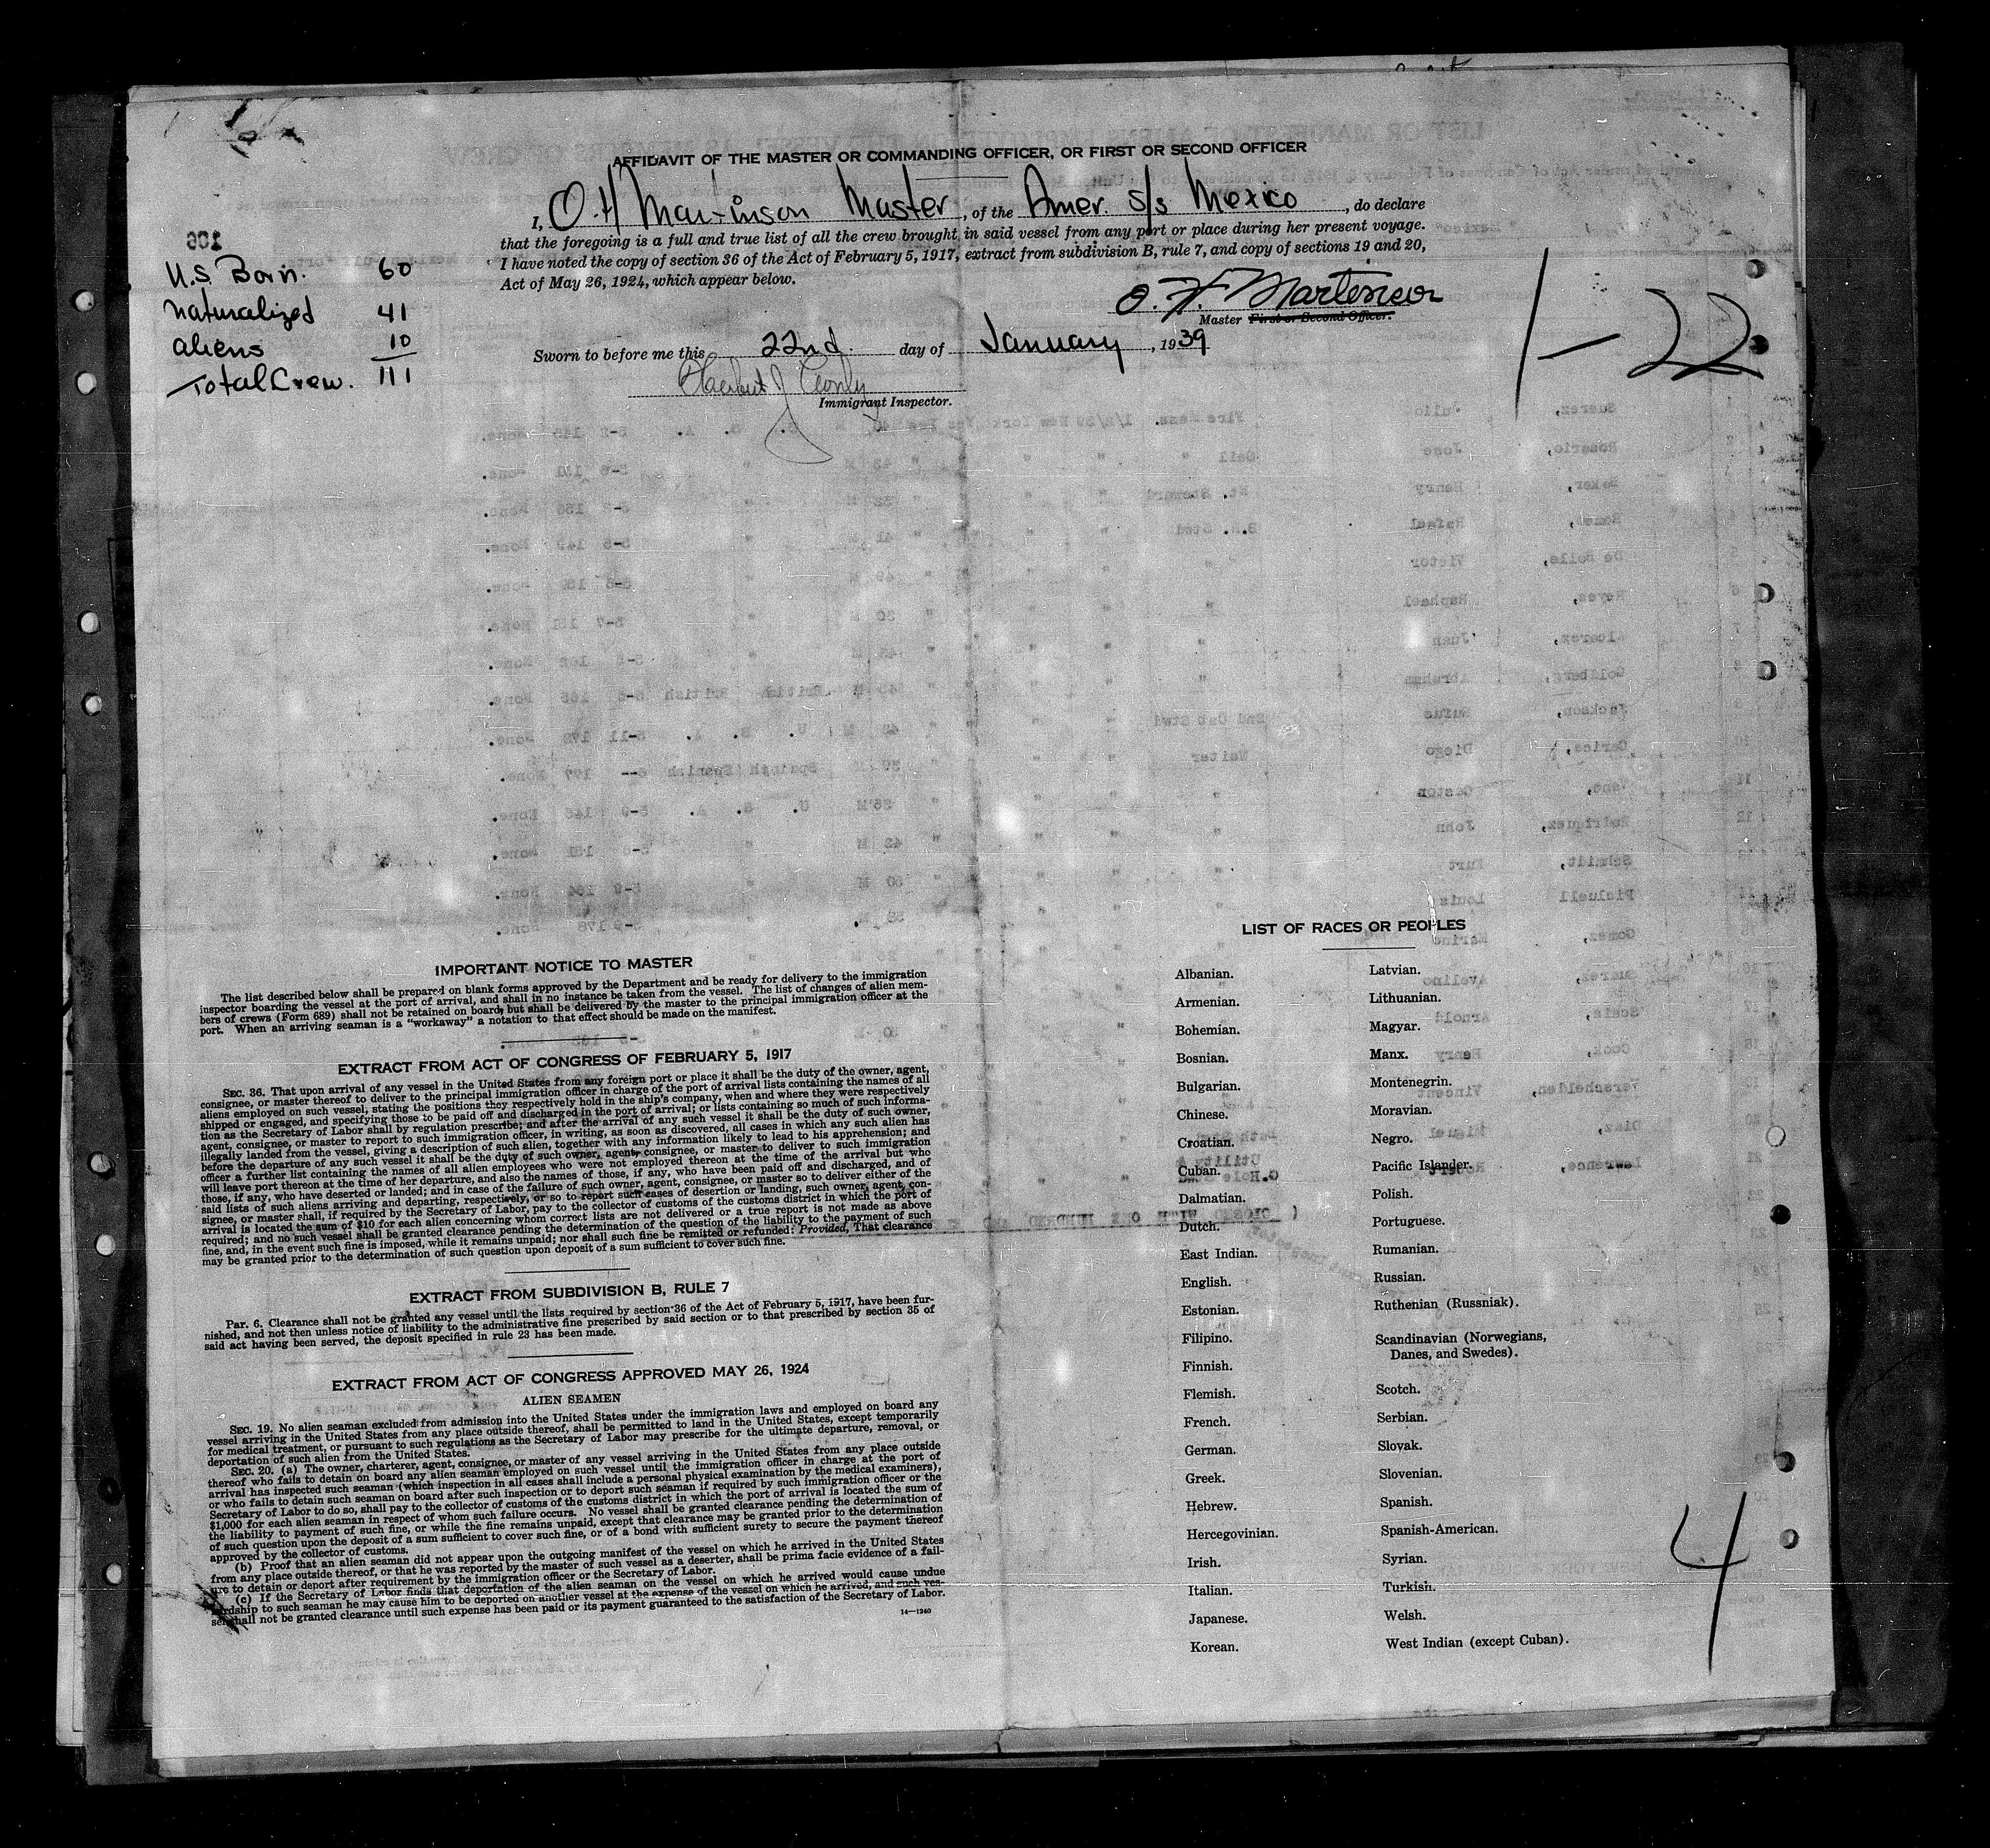 AFFIDAVIT OF THE MASTER OR COMMANDING OFFICER, OR FIRST OR SECOND OFFICER
I, O. H Martinson Master, of the Amer. S/S Mexico, do declare
that the foregoing is a full and true list of all the crew brought in said vessel from any port or place during her present voyage.
I have noted the copy of section 36 of the Act of February 5, 1917, extract from subdivision B, rule 7, and copy of sections 19 and 20,
Act of May 26, 1924, which appear below.
O. H. Martinson
Master First or Second Officer.
Sworn to before me this 22nd. day of January, 1939
Immigrant Inspector.
U.S. Born. 60
Naturalized 41
Aliens 10
Total Crew. 111
1-22
IMPORTANT NOTICE TO MASTER
The list described below shall be prepared on blank forms approved by the Department and be ready for delivery to the immigration
inspector boarding the vessel at the port of arrival, and shall in no instance be taken from the vessel. The list of changes of alien mem-
bers of crews (Form 689) shall not be retained on board, but shall be delivered by the master to the principal immigration officer at the
port. When an arriving seaman is a "workaway" a notation to that effect should be made on the manifest.
EXTRACT FROM ACT OF CONGRESS OF FEBRUARY 5, 1917
SEC. 36. That upon arrival of any vessel in the United States from any foreign port or place it shall be the duty of the owner, agent,
consignee, or master thereof to deliver to the principal immigration officer in charge of the port of arrival lists containing the names of all
aliens employed on such vessel, stating the positions they respectively hold in the ship's company, when and where they were respectively
shipped or engaged, and specifying those to be paid off and discharged in the port of arrival; or lists containing so much of such informa-
tion as the Secretary of Labor shall by regulation prescribe; and after the arrival of any such vessel it shall be the duty of such owner,
agent, consignee, or master to report to such immigration officer, in writing, as soon as discovered, all cases in which any such alien has
illegally landed from the vessel, giving a description of such alien, together with any information likely to lead to his apprehension; and
before the departure of any such vessel it shall be the duty of such owner, agent, consignee, or master to deliver to such immigration
officer a further list containing the names of all alien employees who were not employed thereon at the time of the arrival but who
will leave port thereon at the time of her departure, and also the names of those, if any, who have been paid off and discharged, and of
those, if any, who have deserted or landed; and in case of the failure of such owner, agent, consignee, or master so to deliver either of the
said lists of such aliens arriving and departing, respectively, or so to report such cases of desertion or landing, such owner, agent, con-
signee, or master shall, if required by the Secretary of Labor, pay to the collector of customs of the customs district in which the port of
arrival is located the sum of $10 for each alien concerning whom correct lists are not delivered or a true report is not made as above
required; and no such vessel shall be granted clearance pending the determination of the question of the liability to the payment of such
fine, and, in the event such fine is imposed, while it remains unpaid; nor shall such fine be remitted or refunded: Provided, That clearance
may be granted prior to the determination of such question upon deposit of a sum sufficient to cover such fine.
EXTRACT FROM SUBDIVISION B, RULE 7
Par. 6. Clearance shall not be granted any vessel until the lists required by section 36 of the Act of February 5, 1917, have been fur-
nished, and not then unless notice of liability to the administrative fine prescribed by said section or to that prescribed by section 35 of
said act having been served, the deposit specified in rule 23 has been made.
EXTRACT FROM ACT OF CONGRESS APPROVED MAY 26, 1924
ALIEN SEAMEN
SEC. 19. No alien seaman excluded from admission into the United States under the immigration laws and employed on board any
vessel arriving in the United States from any place outside thereof, shall be permitted to land in the United States, except temporarily
for medical treatment, or pursuant to such regulations as the Secretary of Labor may prescribe for the ultimate departure, removal, or
deportation of such alien from the United States.
SEC. 20. (a) The owner, charterer, agent, consignee, or master of any vessel arriving in the United States from any place outside
thereof who fails to detain on board any alien seaman employed on such vessel until the immigration officer in charge at the port of
arrival has inspected such seaman (which inspection in all cases shall include a personal physical examination by the medical examiners),
or who fails to detain such seaman on board after such inspection or to deport such seaman if required by such immigration officer or the
Secretary of Labor to do so, shall pay to the collector of customs of the customs district in which the port of arrival is located the sum of
$1,000 for each alien seaman in respect of whom such failure occurs. No vessel shall be granted clearance pending the determination of
the liability to payment of such fine, or while the fine remains unpaid, except that clearance may be granted prior to the determination
of such question upon the deposit of a sum sufficient to cover such fine, or of a bond with sufficient surety to secure the payment thereof
approved by the collector of customs.
(b) Proof that an alien seaman did not appear upon the outgoing manifest of the vessel on which he arrived in the United States
from any place outside thereof, or that he was reported by the master of such vessel as a deserter, shall be prima facie evidence of a fail-
ure to detain or deport after requirement by the immigration officer or the Secretary of Labor.
(c) If the Secretary of Labor finds that deportation of the alien seaman on the vessel on which he arrived would cause undue
hardship to such seaman he may cause him to be deported on another vessel at the expense of the vessel on which he arrived, and such ves-
sel shall not be granted clearance until such expense has been paid or its payment guaranteed to the satisfaction of the Secretary of Labor.
14—1240
LIST OF RACES OR PEOPLES
Albanian.
Armenian.
Bohemian.
Bosnian.
Bulgarian.
Chinese.
Croatian.
Cuban.
Dalmatian.
Dutch.
East Indian.
English.
Estonian.
Filipino.
Finnish.
Flemish.
French.
German.
Greek.
Hebrew.
Hercegovinian.
Irish.
Italian.
Japanese.
Korean.
Latvian.
Lithuanian.
Magyar.
Manx.
Montenegrin.
Moravian.
Negro.
Pacific Islander.
Polish.
Portuguese.
Rumanian.
Russian.
Ruthenian (Russniak).
Scandinavian (Norwegians,
Danes, and Swedes).
Scotch.
Serbian.
Slovak.
Slovenian.
Spanish.
Spanish-American.
Syrian.
Turkish.
Welsh.
West Indian (except Cuban).
4